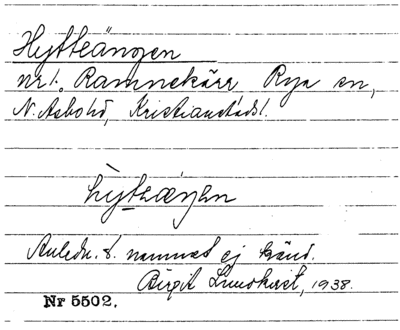 Hytteängen
nr 1. Ramnekärr Rya sn,
N. Åsbo hd, Kristianstads l.
hỳteæŋən
Anledn. t. namnet ej känd.
Birgit Lundkvist, 1938.
Nr 5502.